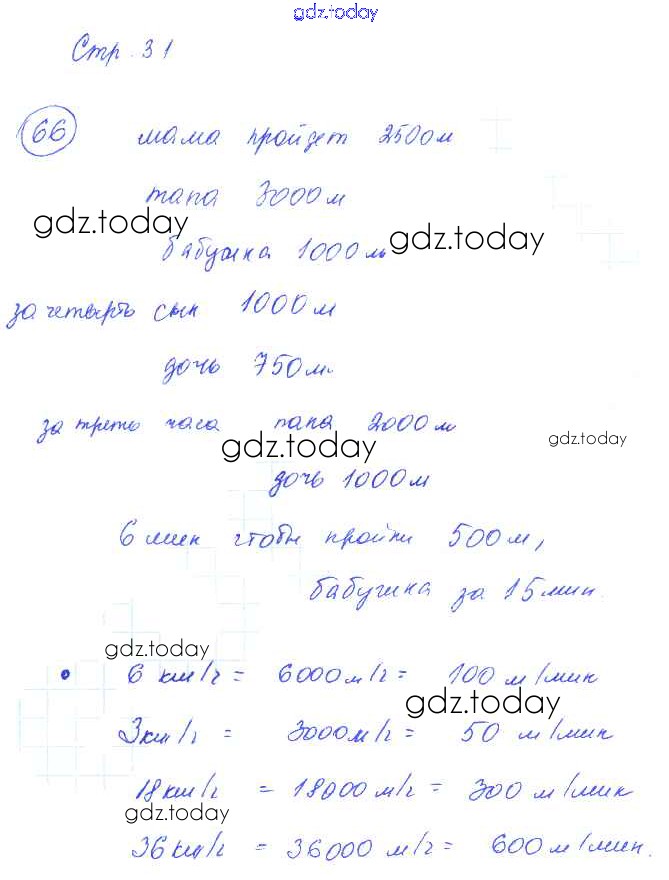 gdz.today
Стр. 31
66 мама пройдет 2500м
папа 3000м
gdz.today
gdz.today
бабушка 1000м
за четверть сын 1000м
дочь 750м.
за треть часа папа 2000м
gdz.today
gdz.today
дочь 1000м
6 мин чтобы пройти 500м,
бабушка за 15мин.
gdz.today
• 6 км/ч = 6000м/ч = 100 м/мин
gdz.today
3км/ч = 3000м/ч = 50 м/мин
18км/ч = 18000м/ч = 300 м/мин
gdz.today
36км/ч = 36000 м/ч = 600м/мин.